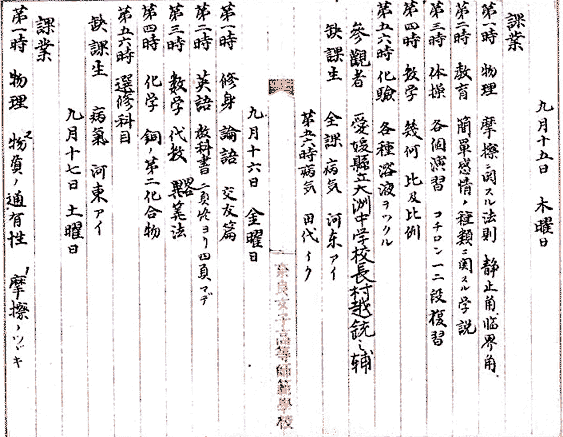 九月十五日　木曜日
課業
第一時　物理　摩擦ニ関スル法則　静止角、臨界角
第二時　教育　簡単感情ノ種類ニ関スル学説
第三時　体操　各個演習　コチロン一二段復習
第四時　数学　幾何　比及比例
第五六時　化験　各種溶液ヲツクル
参観者　愛媛縣立大洲中学校長村越銃之輔
缺課生　全課病気　河东アイ
第五六時病気　田代イク
奈良女子高等師範學校
九月十六日　金曜日
第一時　修身　論語　交友篇
第二時　英語　教科書　二頁終ヨリ四頁マデ
第三時　数学　代数　畧算法
第四時　化学　銅ノ第二化合物
第五六時　選修科目
缺課生　病氣　河東アイ
九月十七日　土曜日
課業
第一時　物理　物質ノ通有性　摩擦ノツヾキ